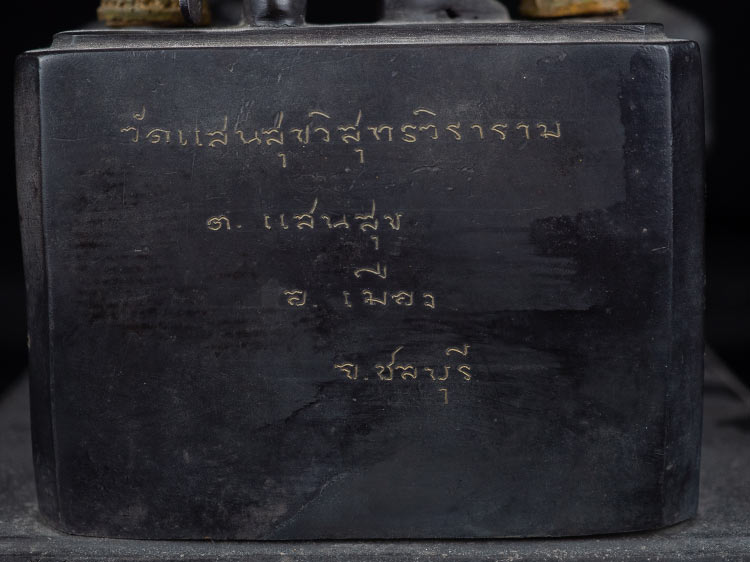 วัดแสนสุขวิสุทธิวราราม
ต. แสนสุข
อ. เมือง
จ. ชลบุรี